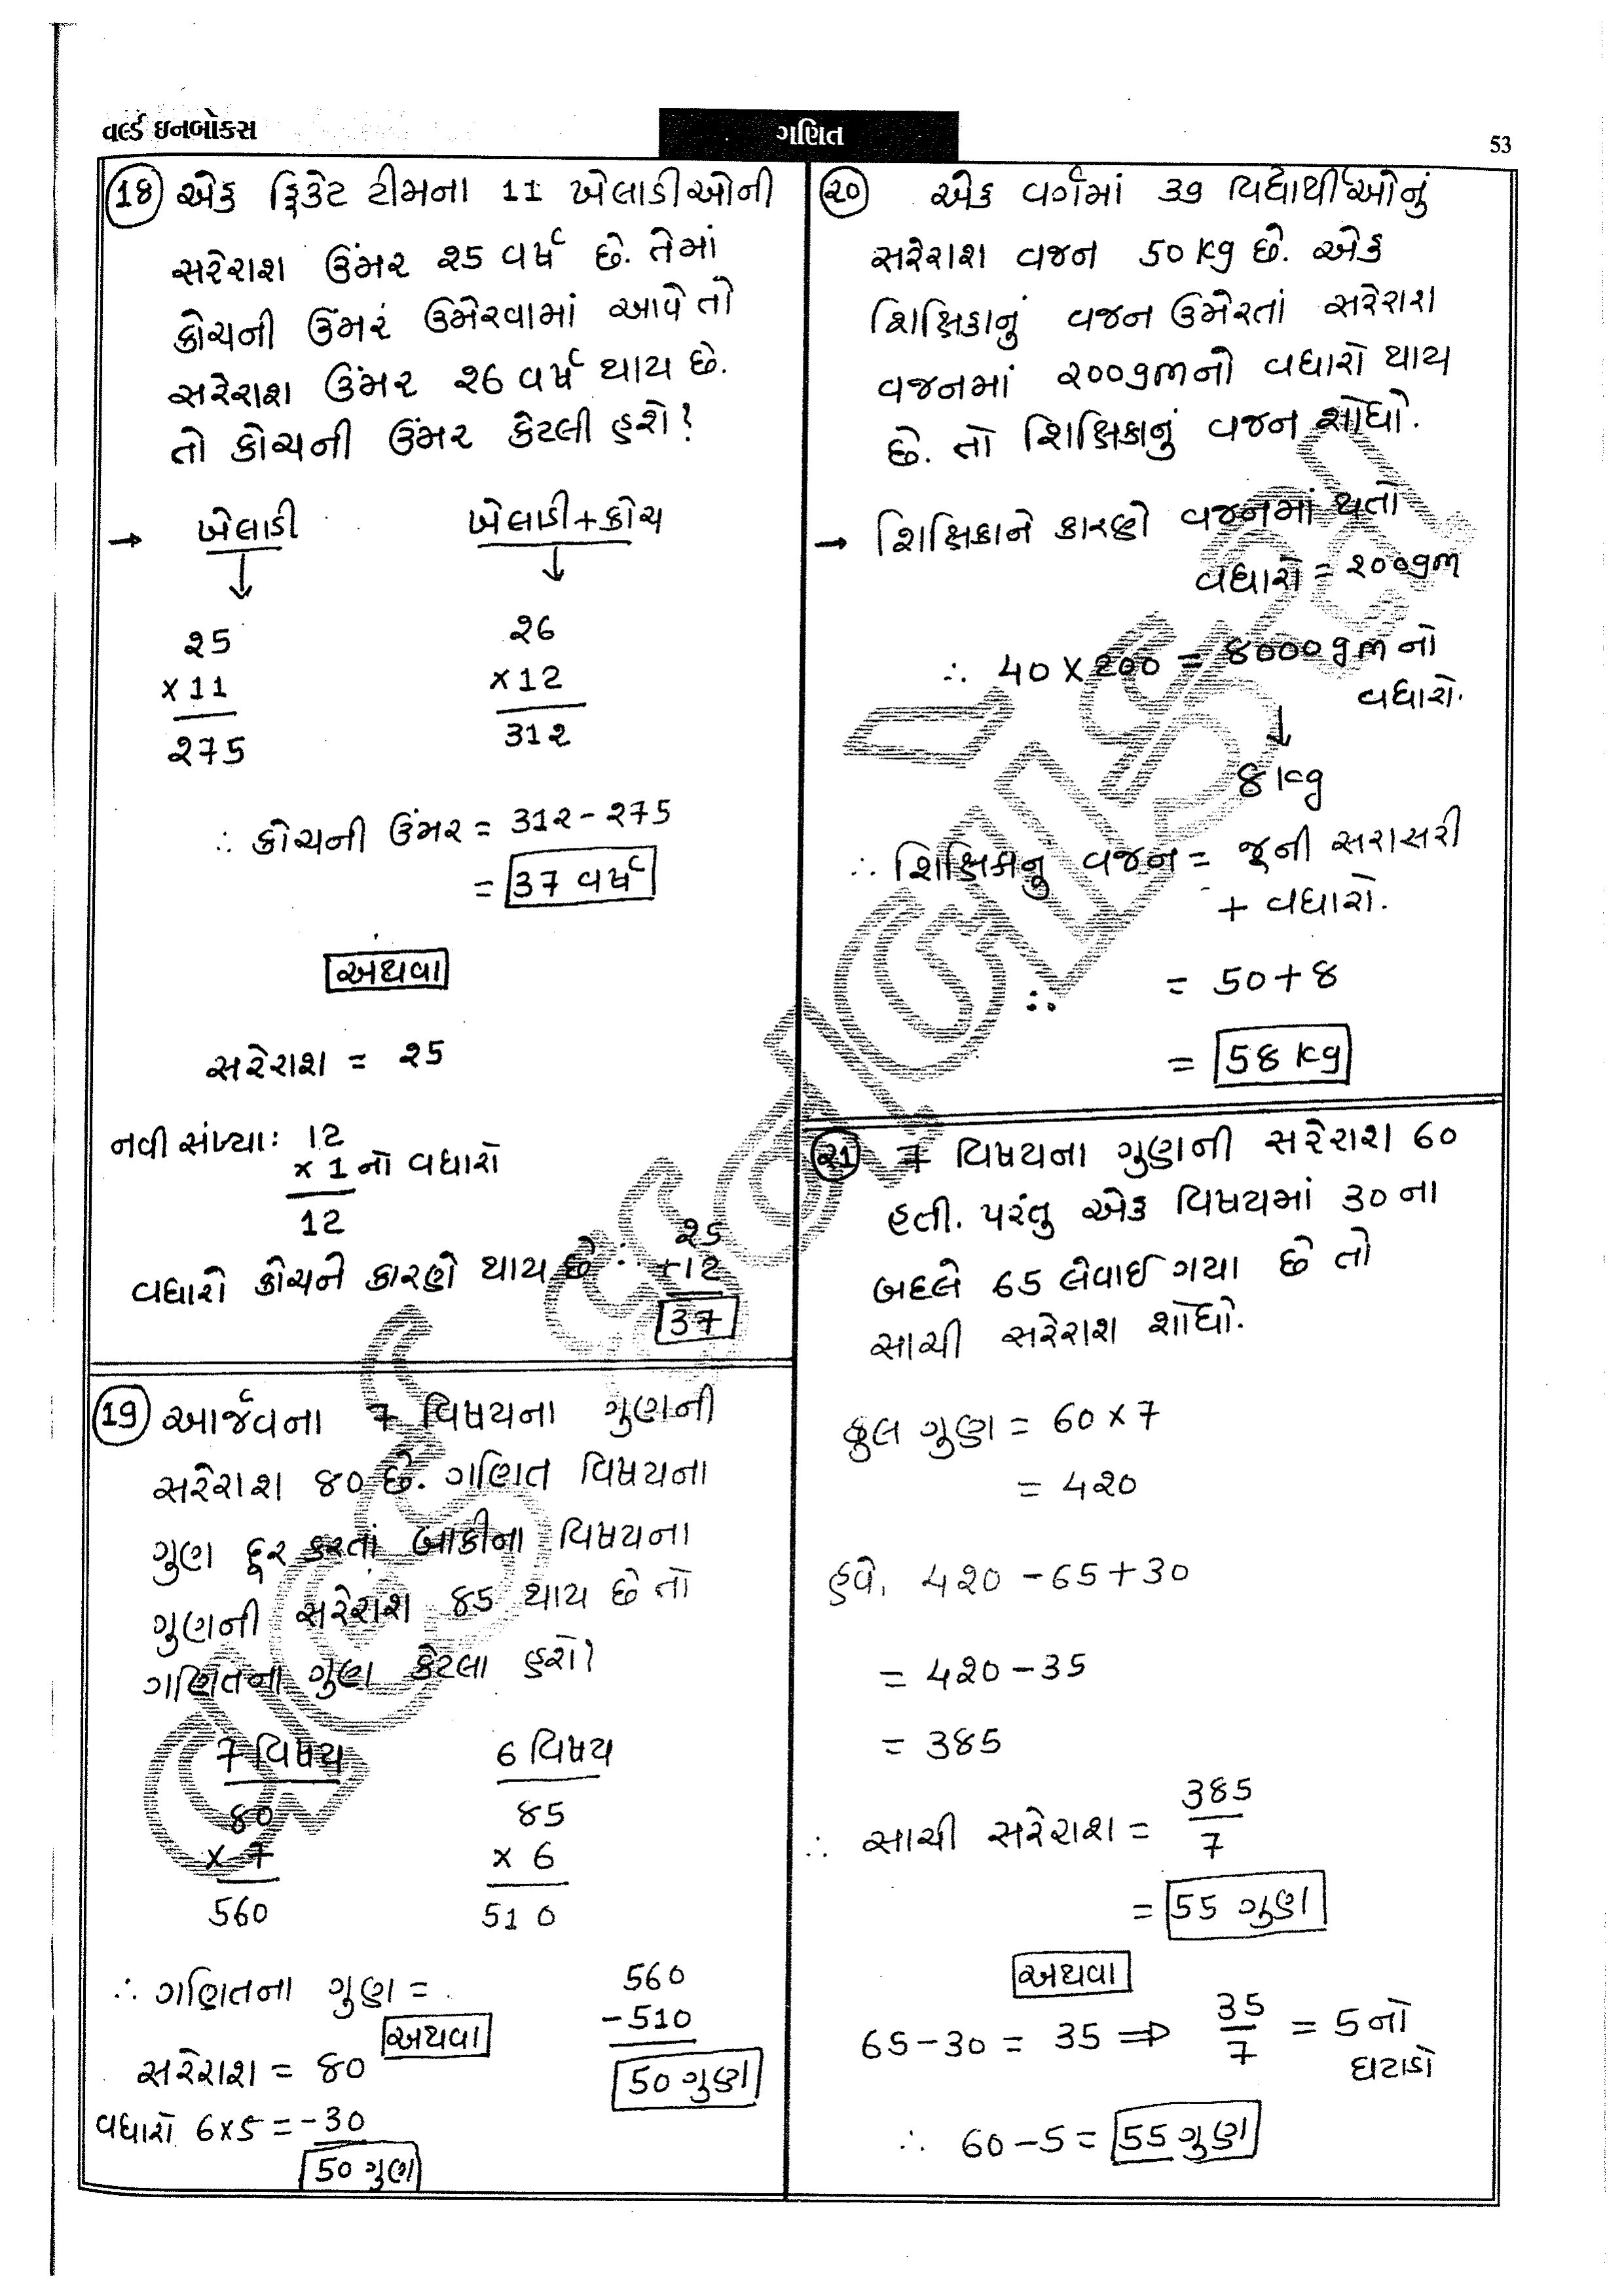 વર્લ્ડ ઇનબોક્સ
ગણિત
53
18 એક ક્રિકેટ ટીમના 11 ખેલાડીઓની
સરેરાશ ઉંમર ૨5 વર્ષ છે. તેમાં
કોચની ઉંમર ઉમેરવામાં આવે તો
સરેરાશ ઉંમર ૨6 વર્ષ થાય છે.
તો કોચની ઉંમર કેટલી હશે?
→ ખેલાડી ખેલાડી+કોચ
↓ ↓
૨5 ૨6
×11 ×12
૨75 31૨
∴ કોચની ઉંમર = 31૨-૨75
= 37 વર્ષ
અથવા
સરેરાશ = ૨5
નવી સંખ્યા: 12
× 1 નો વધારો
12
વધારો કોચને કારણે થાય છે ∴ ૨5
+12
37
19 આર્જવના 7 વિષયના ગુણની
સરેરાશ 80 છે. ગણિત વિષયના
ગુણ દૂર કરતાં બાકીના વિષયના
ગુણની સરેરાશ 85 થાય છે તો
ગણિતના ગુણ કેટલા હશે?
7 વિષય 6 વિષય
80 85
× 7 × 6
560 510
∴ ગણિતના ગુણ = 560
-510
50 ગુણ
અથવા
સરેરાશ = 80
વધારો 6×5 = -30
50 ગુણ
૨0 એક વર્ગમાં 39 વિદ્યાર્થીઓનું
સરેરાશ વજન 50 kg છે. એક
શિક્ષિકાનું વજન ઉમેરતાં સરેરાશ
વજનમાં ૨00gmનો વધારો થાય
છે. તો શિક્ષિકાનું વજન શોધો.
→ શિક્ષિકાને કારણે વજનમાં થતો
વધારો = ૨00gm
∴ 40 × ૨00 = 8000gm નો
વધારો.
↓
8 kg
∴ શિક્ષિકાનું વજન = જૂની સરાસરી
+ વધારો.
∴ = 50+8
= 58 kg
૨1 7 વિષયના ગુણની સરેરાશ 60
હતી. પરંતુ એક વિષયમાં 30 ના
બદલે 65 લેવાઈ ગયા છે તો
સાચી સરેરાશ શોધો.
કુલ ગુણ = 60 × 7
= 4૨0
હવે, 4૨0 - 65 + 30
= 4૨0 - 35
= 385
∴ સાચી સરેરાશ = 385
7
= 55 ગુણ
અથવા
65-30 = 35 ⇒ 35/7 = 5 નો
ઘટાડો
∴ 60-5 = 55 ગુણ